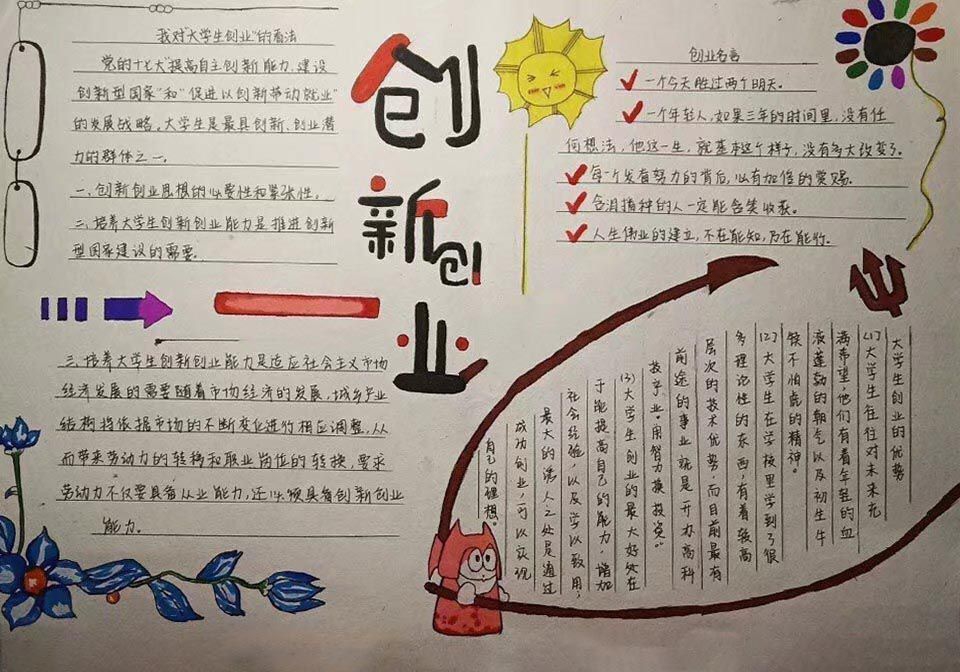 我对"大学生创业"的看法
党的十七大"提高自主创新能力、建设
创新型国家"和"促进以创新带动就业"
的发展战略。大学生是最具创新、创业潜
力的群体之一。
一、创新创业思想的必要性和紧张性。
二、培养大学生创新创业能力是推进创新
型国家建设的需要。
三、培养大学生创新创业能力是适应社会主义市场
经济发展的需要随着市场经济的发展,城乡产业
结构将依据市场的不断变化进行相应调整,从
而带来劳动力的转移和职业岗位的转换,要求
劳动力不仅要具备从业能力,还必须具备创新创业
能力。
创
新
创
业
创业名言
一个今天胜过两个明天。
一个年轻人,如果三年的时间里,没有任
何想法,他这一生,就基本这个样子,没有多大改变了。
每个发奋努力的背后,必有加倍的赏赐。
含泪播种的人一定能含笑收获。
人生伟业的建立,不在能知,乃在能行。
大学生创业的优势
(1)大学生往往对未来充
满希望,他们有着年轻的血
液蓬勃的朝气以及初生牛
犊不怕虎的精神。
(2)大学生在学校里学到了很
多理论性的东西,有着较高
层次的技术优势而目前最有
前途的事业就是开办高科
技企业。"用智力换投资"
(3)大学生创业的最大好处在
于能提高自己的能力、增加
社会经验,以及学以致用,
最大的诱人之处是通过
成功创业,可以实现
自己的理想。